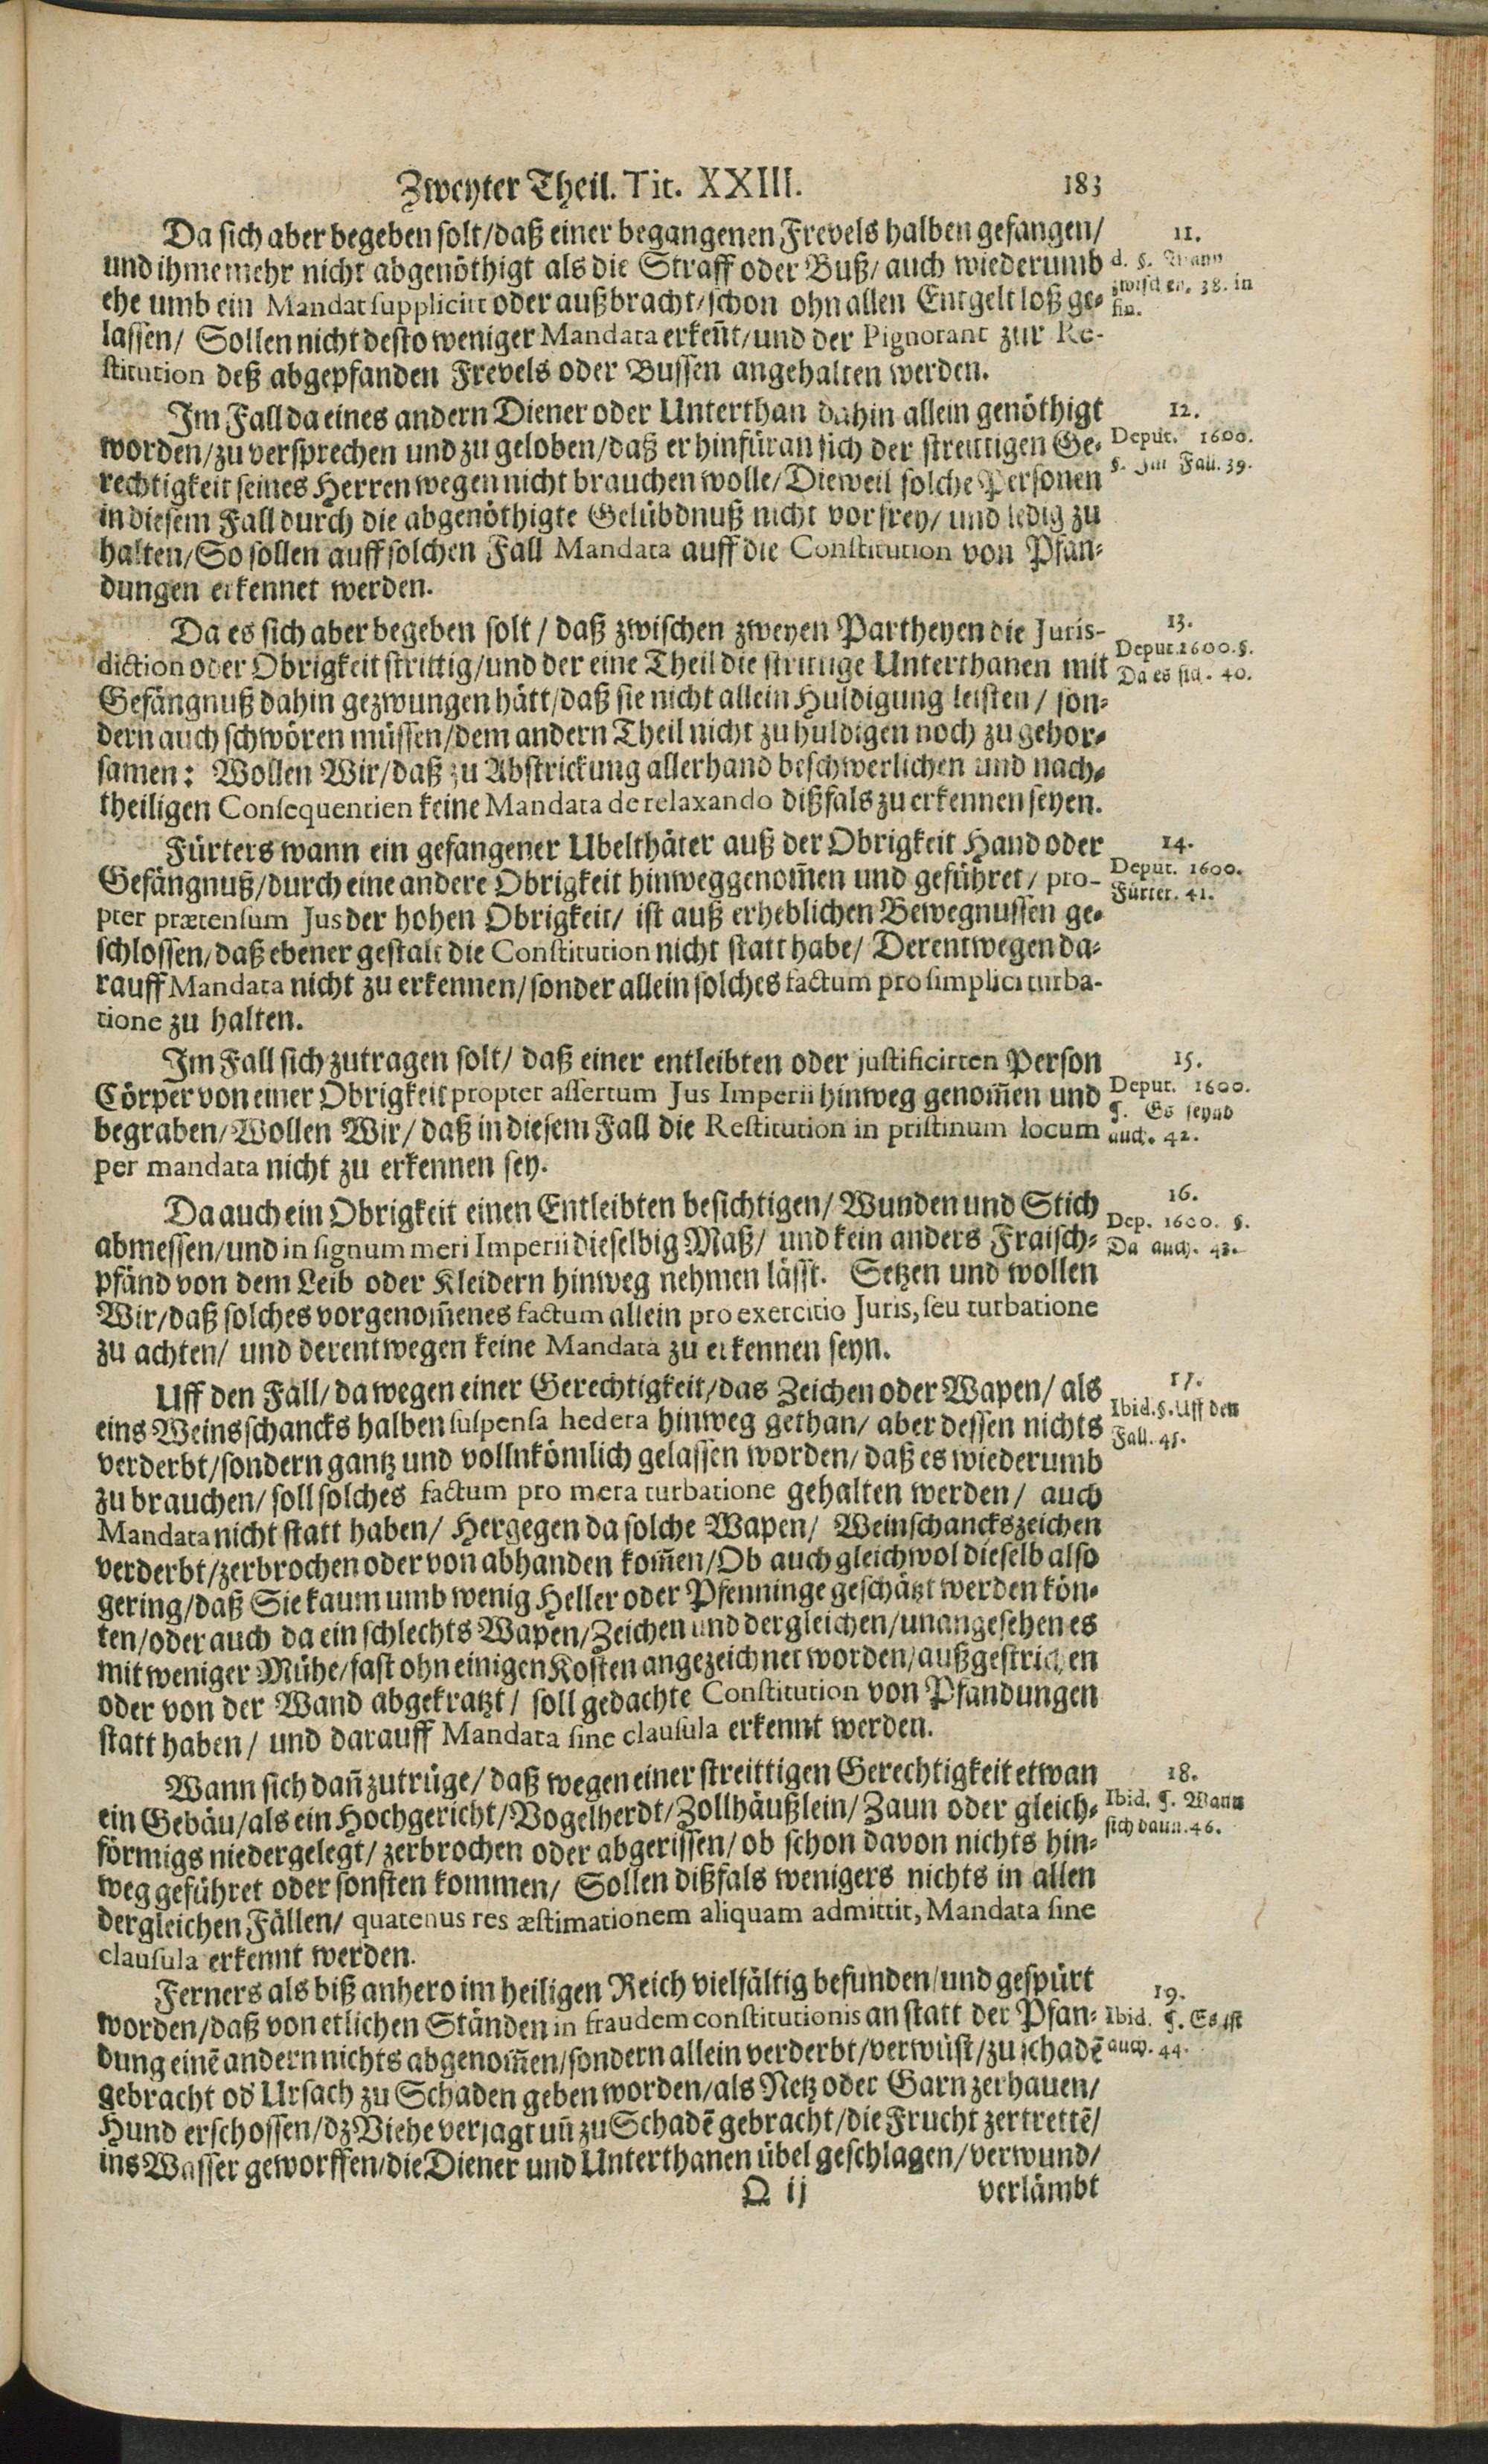 Zweyter Theil. Tit. XXIII. 183
Da sich aber begeben solt/daß einer begangenen Frevels halben gefangen/
und ihme mehr nicht abgenöthigt als die Straff oder Buß/ auch wiederumb
ehe umb ein Mandat supplicirt oder außbracht/schon ohn allen Entgelt loß ge-
lassen/ Sollen nicht desto weniger Mandata erkeñt/und der Pignorant zur Re-
stitution deß abgepfanden Frevels oder Bussen angehalten werden.
11.
d. §. Wann
zwischen. 38. in
fin.
Im Fall da eines andern Diener oder Unterthan dahin allein genöthigt
worden/zu versprechen und zu geloben/daß er hinfüran sich der streittigen Ge-
rechtigkeit seines Herren wegen nicht brauchen wolle/Dieweil solche Personen
in diesem Fall durch die abgenöthigte Gelübdnuß nicht vor frey/ und ledig zu
halten/So sollen auff solchen Fall Mandata auff die Constitution von Pfan-
dungen erkennet werden.
12.
Deput. 1600.
§. Im Fall. 39.
Da es sich aber begeben solt / daß zwischen zweyen Partheyen die Juris-
diction oder Obrigkeit strittig/und der eine Theil die strittige Unterthanen mit
Gefängnuß dahin gezwungen hätt/daß sie nicht allein Huldigung leisten / son-
dern auch schwören müssen/dem andern Theil nicht zu huldigen noch zu gehor-
samen: Wollen Wir/daß zu Abstrickung allerhand beschwerlichen und nach-
theiligen Consequentien keine Mandata de relaxando dißfals zu erkennen seyen.
13.
Deput. 1600. §.
Da es sich. 40.
Fürters wann ein gefangener Ubelthäter auß der Obrigkeit Hand oder
Gefängnuß/durch eine andere Obrigkeit hinweggenom̃en und geführet/ pro-
pter prætensum Jus der hohen Obrigkeit/ ist auß erheblichen Bewegnussen ge-
schlossen/daß ebener gestalt die Constitution nicht statt habe/ Derentwegen da-
rauff Mandata nicht zu erkennen/sonder allein solches factum pro simplici turba-
tione zu halten.
14.
Deput. 1600.
Fürter. 41.
Im Fall sich zutragen solt/ daß einer entleibten oder justificirten Person
Cörper von einer Obrigkeit propter assertum Jus Imperii hinweg genom̃en und
begraben/Wollen Wir/ daß in diesem Fall die Restitution in pristinum locum
per mandata nicht zu erkennen sey.
15.
Deput. 1600.
§. Es seynd
auch. 42.
Da auch ein Obrigkeit einen Entleibten besichtigen/Wunden und Stich
abmessen/und in signum meri Imperii dieselbig Maß/ und kein anders Fraisch-
pfänd von dem Leib oder Kleidern hinweg nehmen lässt. Setzen und wollen
Wir/daß solches vorgenom̃enes factum allein pro exercitio Juris, seu turbatione
zu achten/ und derentwegen keine Mandata zu erkennen seyn.
16.
Dep. 1600. §.
Da auch. 43.
Uff den Fall/da wegen einer Gerechtigkeit/das Zeichen oder Wapen/ als
eins Weinsschancks halben suspensa hedera hinweg gethan/ aber dessen nichts
verderbt/sondern gantz und vollnkömlich gelassen worden/daß es wiederumb
zu brauchen/ soll solches factum pro mera turbatione gehalten werden/ auch
Mandata nicht statt haben/ Hergegen da solche Wapen/ Weinschanckszeichen
verderbt/zerbrochen oder von abhanden kom̃en/Ob auch gleichwol dieselb also
gering/daß Sie kaum umb wenig Heller oder Pfenninge geschätzt werden kön-
ten/oder auch da ein schlechts Wapen/Zeichen und dergleichen/unangesehen es
mit weniger Mühe/fast ohn einigen Kosten angezeichnet worden/außgestrichen
oder von der Wand abgekratzt/ soll gedachte Constitution von Pfandungen
statt haben/ und darauff Mandata sine clausula erkennt werden.
17.
Ibid. §. Uff den
Fall. 45.
Wann sich dañ zutrüge/daß wegen einer streittigen Gerechtigkeit etwan
ein Gebäu/als ein Hochgericht/Vogelherdt/Zollhäußlein/Zaun oder gleich-
förmigs niedergelegt/zerbrochen oder abgerissen/ob schon davon nichts hin-
weg geführet oder sonsten kommen/ Sollen dißfals wenigers nichts in allen
dergleichen Fällen/ quatenus res æstimationem aliquam admittit, Mandata sine
clausula erkennt werden.
18.
Ibid. §. Wann
sich dann. 46.
Ferners als biß anhero im heiligen Reich vielfältig befunden/und gespürt
worden/daß von etlichen Ständen in fraudem constitutionis an statt der Pfan-
dung einẽ andern nichts abgenom̃en/sondern allein verderbt/verwüst/zu schadẽ
gebracht od' Ursach zu Schaden geben worden/als Netz oder Garn zerhauen/
Hund erschossen/dz Viehe verjagt uñ zu Schadẽ gebracht/die Frucht zertrettẽ/
ins Wasser geworffen/die Diener und Unterthanen übel geschlagen/verwund/
19.
Ibid. §. Es ist
auch. 44.
Q ij verlämbt